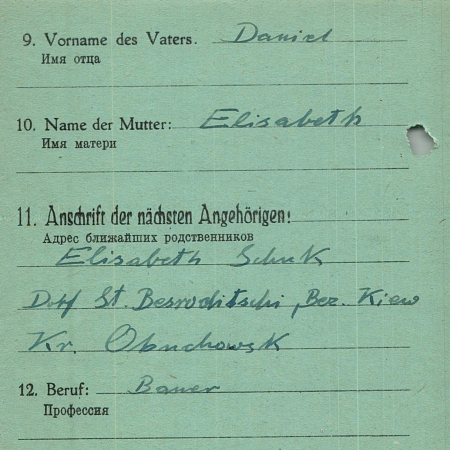 9. Vorname des Vaters. Daniel
Имя отца
10. Name der Mutter: Elisabeth
Имя матери
11. Anschrift der nächsten Angehörigen:
Адрес ближайших родственников
Elisabeth Schuk
Dorf St. Besroditschi, Bez. Kiew
Kr. Obuchowsk
12. Beruf: Bauer
Профессия